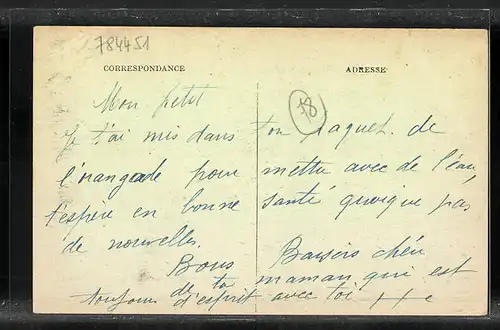 784451
CORRESPONDANCE
ADRESSE
78
Mon petit
Je t'ai mis dans ton paquet de
l'orangeade pour mettre avec de l'eau,
t'espère en bonne santé quoique pas
de nouvelles. Baisers chéri
Bons de ta maman qui est
toujours d'esprit avec toi